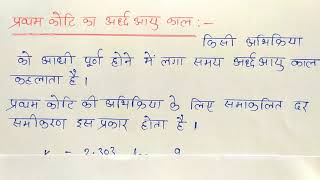 प्रथम कोटि का अर्द्ध आयु काल :-
किसी अभिक्रिया
को आधी पूर्ण होने में लगा समय अर्द्ध आयु काल
कहलाता है।
प्रथम कोटि की अभिक्रिया के लिए समाकलित दर
समीकरण इस प्रकार होता है।
= 2.303